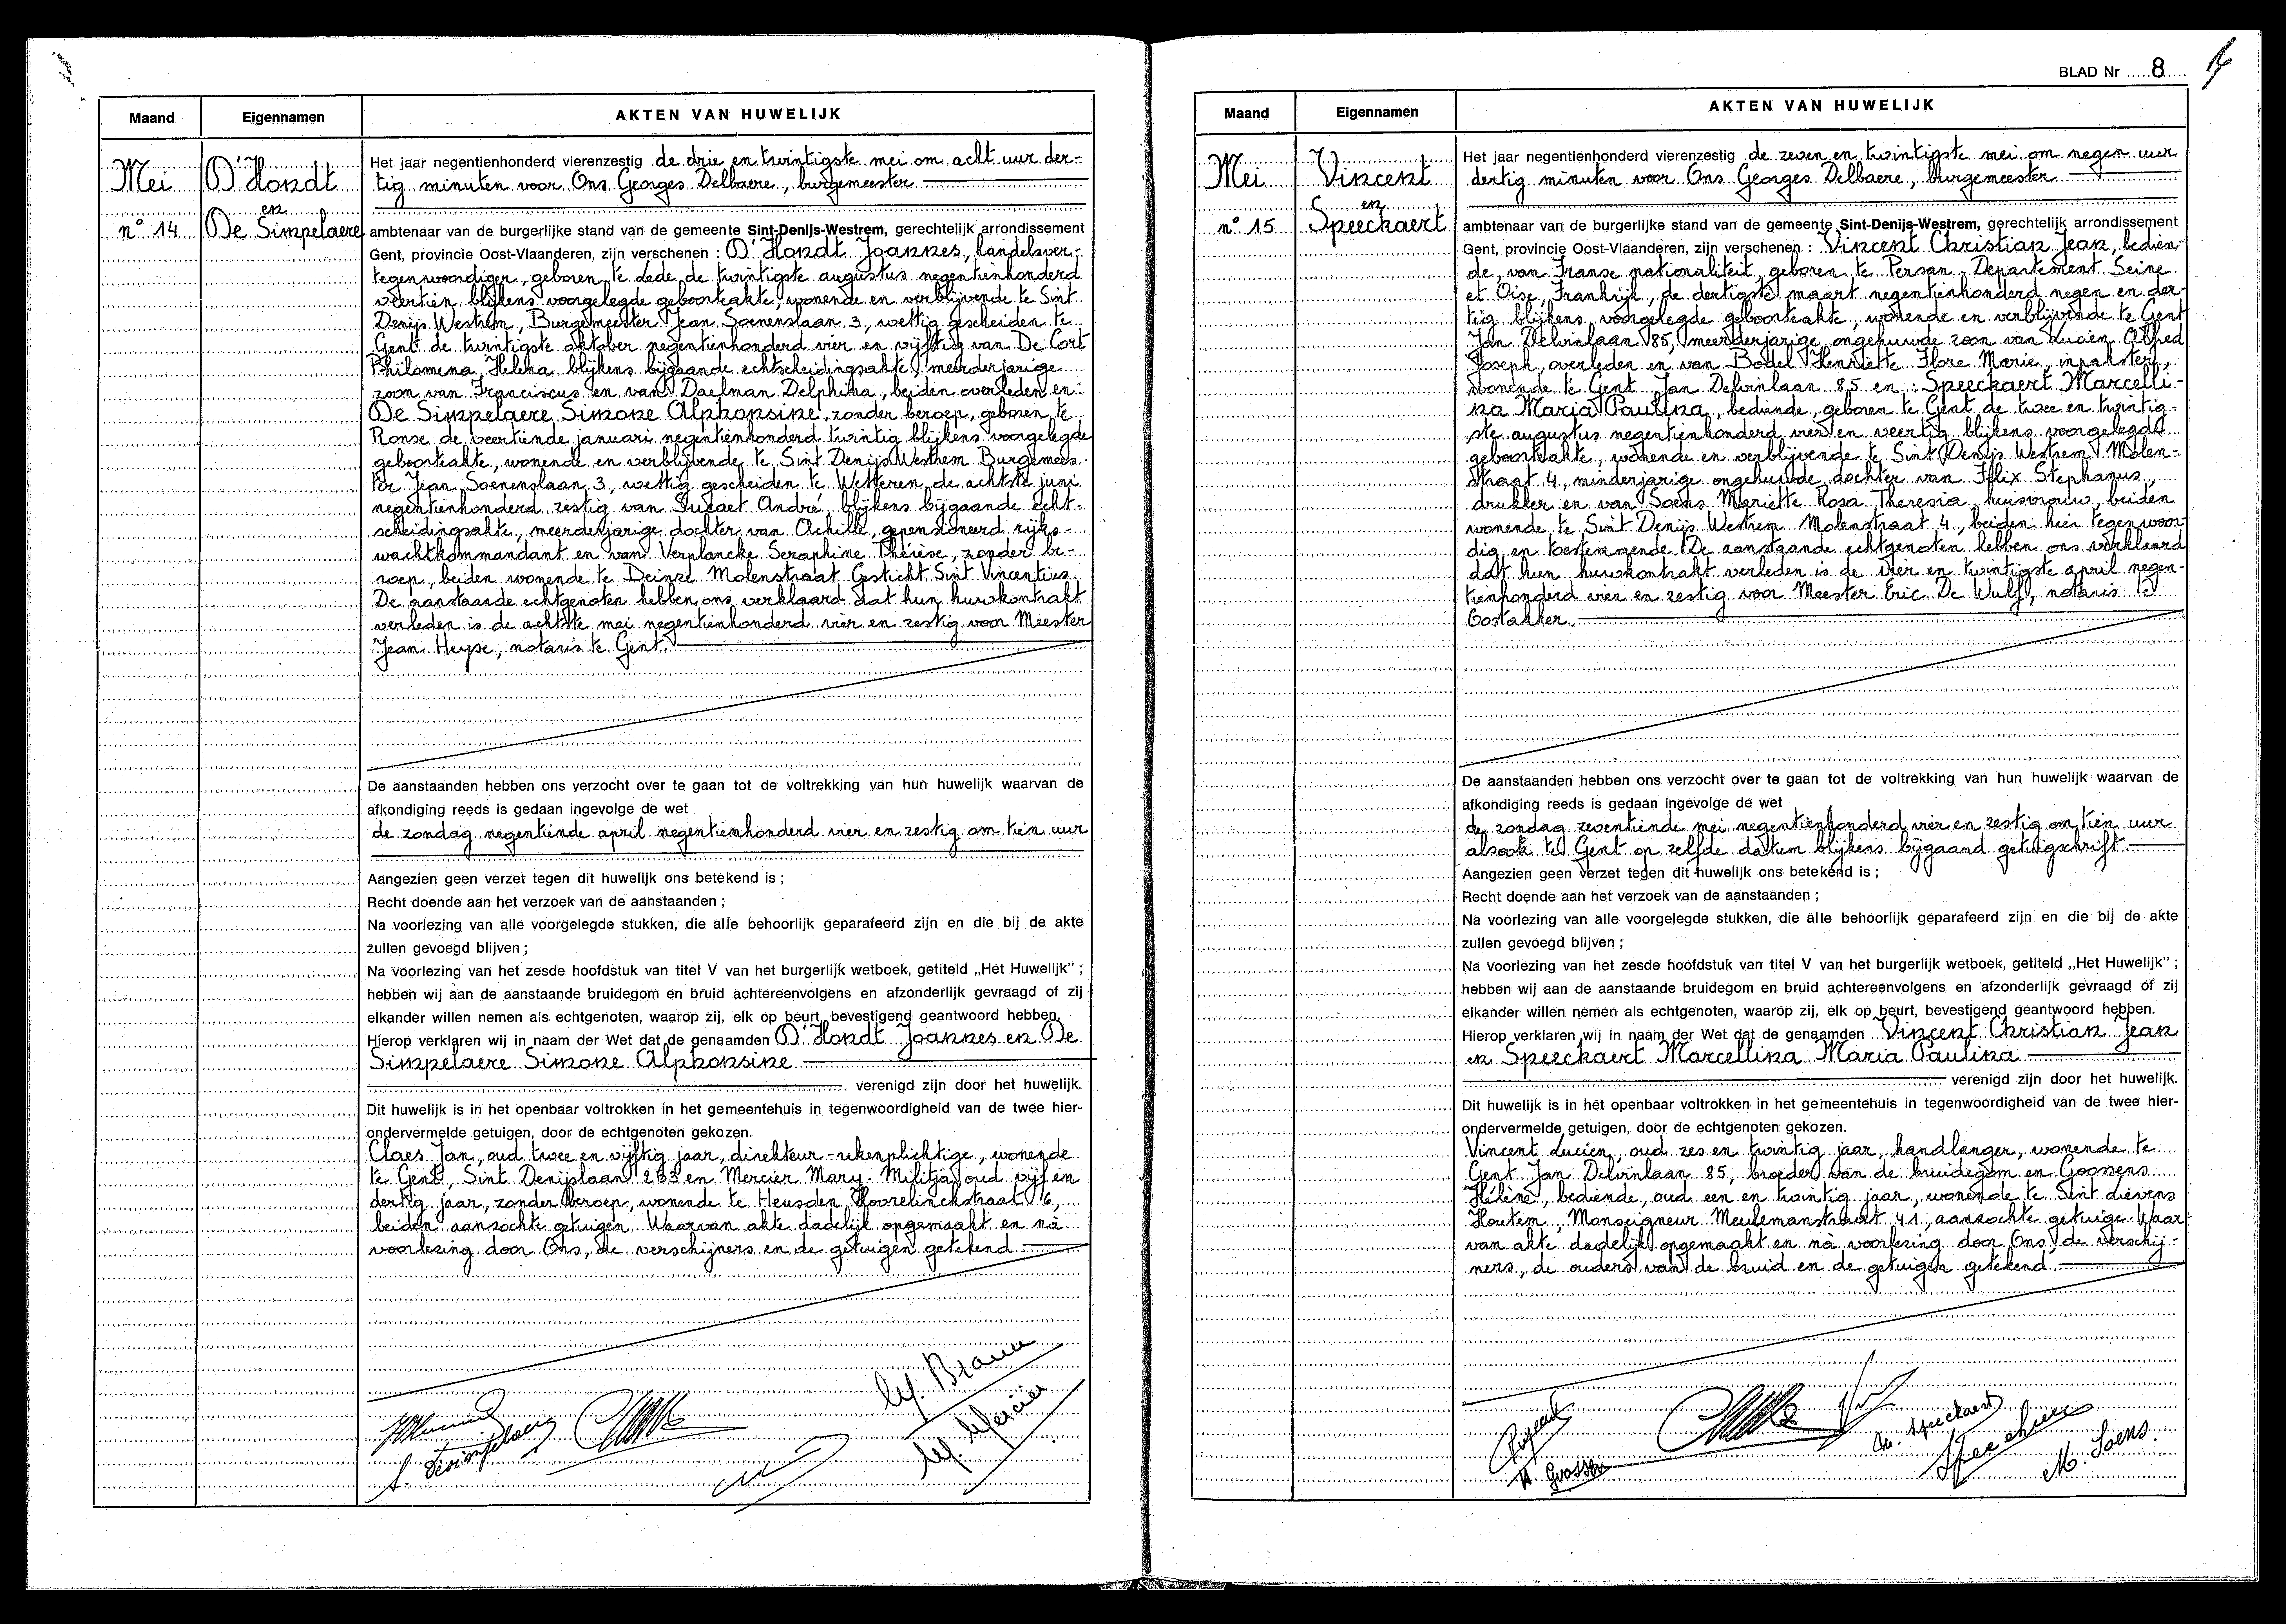 Maand
Eigennamen
AKTEN VAN HUWELIJK
Mei
D'Hondt
en
n° 14
De Simpelaere
Het jaar negentienhonderd vierenzestig de drie en twintigste mei om acht uur der-
tig minuten voor Ons Georges Delbaere, burgemeester
ambtenaar van de burgerlijke stand van de gemeente Sint-Denijs-Westrem, gerechtelijk arrondissement
Gent, provincie Oost-Vlaanderen, zijn verschenen : D'Hondt Joannes, handelsver-
tegenwoordiger, geboren te Lede de twintigste augustus negentienhonderd
veertien blijkens voorgelegde geboorteakte, wonende en verblijvende te Sint
Denijs Westrem, Burgemeester Jean Soenenslaan 3, wettig gescheiden te
Gent de twintigste oktober negentienhonderd vier en vijftig van De Cort
Philomena Helena blijkens bijgaande echtscheidingsakte, meerderjarige
zoon van Franciscus en van Daelman Delphina, beiden overleden en :
De Simpelaere Simone Alphonsine, zonder beroep, geboren te
Ronse de veertiende januari negentienhonderd twintig blijkens voorgelegde
geboorteakte, wonende en verblijvende te Sint Denijs Westrem Burgemees-
ter Jean Soenenslaan 3, wettig gescheiden te Wetteren de achtste juni
negentienhonderd zestig van André blijkens bijgaande echt-
scheidingsakte, meerderjarige dochter van Achille, gepensioneerd rijks-
wachtkommandant en van Verplancke Seraphine Thérèse, zonder be-
roep, beiden wonende te Deinze Molenstraat Gesticht Sint Vincentius.
De aanstaande echtgenoten hebben ons verklaard dat hun huwkontrakt
verleden is de achtste mei negentienhonderd vier en zestig voor Meester
Jean Heyse, notaris te Gent.
De aanstaanden hebben ons verzocht over te gaan tot de voltrekking van hun huwelijk waarvan de
afkondiging reeds is gedaan ingevolge de wet
de zondag negentiende april negentienhonderd vier en zestig om tien uur
Aangezien geen verzet tegen dit huwelijk ons betekend is ;
Recht doende aan het verzoek van de aanstaanden ;
Na voorlezing van alle voorgelegde stukken, die alle behoorlijk geparafeerd zijn en die bij de akte
zullen gevoegd blijven ;
Na voorlezing van het zesde hoofdstuk van titel V van het burgerlijk wetboek, getiteld „Het Huwelijk” ;
hebben wij aan de aanstaande bruidegom en bruid achtereenvolgens en afzonderlijk gevraagd of zij
elkander willen nemen als echtgenoten, waarop zij, elk op beurt, bevestigend geantwoord hebben.
Hierop verklaren wij in naam der Wet dat de genaamden D'Hondt Joannes en De
Simpelaere Simone Alphonsine
verenigd zijn door het huwelijk.
Dit huwelijk is in het openbaar voltrokken in het gemeentehuis in tegenwoordigheid van de twee hier-
ondervermelde getuigen, door de echtgenoten gekozen.
Claes Jan, oud twee en vijftig jaar, direkteur-rekenplichtige, wonende
te Gent, Sint Denijslaan 283 en Mercier Mary-Militja, oud vijf en
dertig jaar, zonder beroep, wonende te Heusden, Hoorelinckstraat 6,
beiden aanzochte getuigen. Waarvan akte dadelijk opgemaakt en nà
voorlezing door Ons, de verschijners en de getuigen getekend
M. Mercier
BLAD Nr 8
Maand
Eigennamen
AKTEN VAN HUWELIJK
Mei
Vincent
en
n° 15
Speeckaert
Het jaar negentienhonderd vierenzestig de zeven en twintigste mei om negen uur
dertig minuten voor Ons Georges Delbaere, burgemeester
ambtenaar van de burgerlijke stand van de gemeente Sint-Denijs-Westrem, gerechtelijk arrondissement
Gent, provincie Oost-Vlaanderen, zijn verschenen : Vincent Christian Jean, bedien-
de, van Franse nationaliteit, geboren te Persan - Departement Seine
et Oise, Frankrijk, de dertigste maart negentienhonderd negen en der-
tig blijkens voorgelegde geboorteakte, wonende en verblijvende te Gent
Jan Delvinlaan 85, meerderjarige ongehuwde zoon van Lucien Alfred
Joseph, overleden en van Bodel Henriette Flore Marie, inpakster,
wonende te Gent Jan Delvinlaan 85 en : Speeckaert Marcelli-
na Maria Paulina, bediende, geboren te Gent de twee en twintig-
ste augustus negentienhonderd vier en veertig blijkens voorgelegde
geboorteakte, wonende en verblijvende te Sint Denijs Westrem Molen-
straat 4, minderjarige ongehuwde dochter van Felix Stephanus,
drukker en van Soens Mariette Rosa Theresia, huisvrouw, beiden
wonende te Sint Denijs Westrem Molenstraat 4, beiden hier tegenwoor-
dig en toestemmende. De aanstaande echtgenoten hebben ons verklaard
dat hun huwkontrakt verleden is de vier en twintigste april negen-
tienhonderd vier en zestig voor Meester Eric De Wulf, notaris te
Oostakker.
De aanstaanden hebben ons verzocht over te gaan tot de voltrekking van hun huwelijk waarvan de
afkondiging reeds is gedaan ingevolge de wet
de zondag zeventiende mei negentienhonderd vier en zestig om tien uur
alsook te Gent op zelfde datum blijkens bijgaand getuigschrift
Aangezien geen verzet tegen dit huwelijk ons betekend is ;
Recht doende aan het verzoek van de aanstaanden ;
Na voorlezing van alle voorgelegde stukken, die alle behoorlijk geparafeerd zijn en die bij de akte
zullen gevoegd blijven ;
Na voorlezing van het zesde hoofdstuk van titel V van het burgerlijk wetboek, getiteld „Het Huwelijk” ;
hebben wij aan de aanstaande bruidegom en bruid achtereenvolgens en afzonderlijk gevraagd of zij
elkander willen nemen als echtgenoten, waarop zij, elk op beurt, bevestigend geantwoord hebben.
Hierop verklaren wij in naam der Wet dat de genaamden Vincent Christian Jean
en Speeckaert Marcellina Maria Paulina
verenigd zijn door het huwelijk.
Dit huwelijk is in het openbaar voltrokken in het gemeentehuis in tegenwoordigheid van de twee hier-
ondervermelde getuigen, door de echtgenoten gekozen.
Vincent Lucien, oud zes en twintig jaar, handlanger, wonende te
Gent Jan Delvinlaan 85, broeder van de bruidegom en Goossens
Hélène, bediende, oud een en twintig jaar, wonende te Sint Lievens
Houtem, Monseigneur Meulemanstraat 41, aanzochte getuige. Waar-
van akte dadelijk opgemaakt en nà voorlezing door Ons, de verschij-
ners, de ouders van de bruid en de getuigen getekend.
M. Speeckaert
H. Goossens
M. Soens.